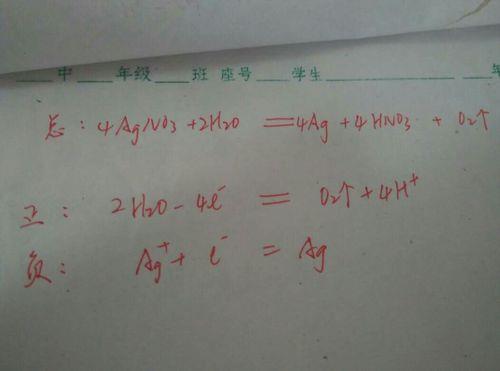 中 年级 班 座号 学生 年
总: 4AgNO3 +2H2O = 4Ag + 4HNO3 + O2↑
正: 2H2O - 4e⁻ = O2↑ + 4H⁺
负: Ag⁺ + e⁻ = Ag